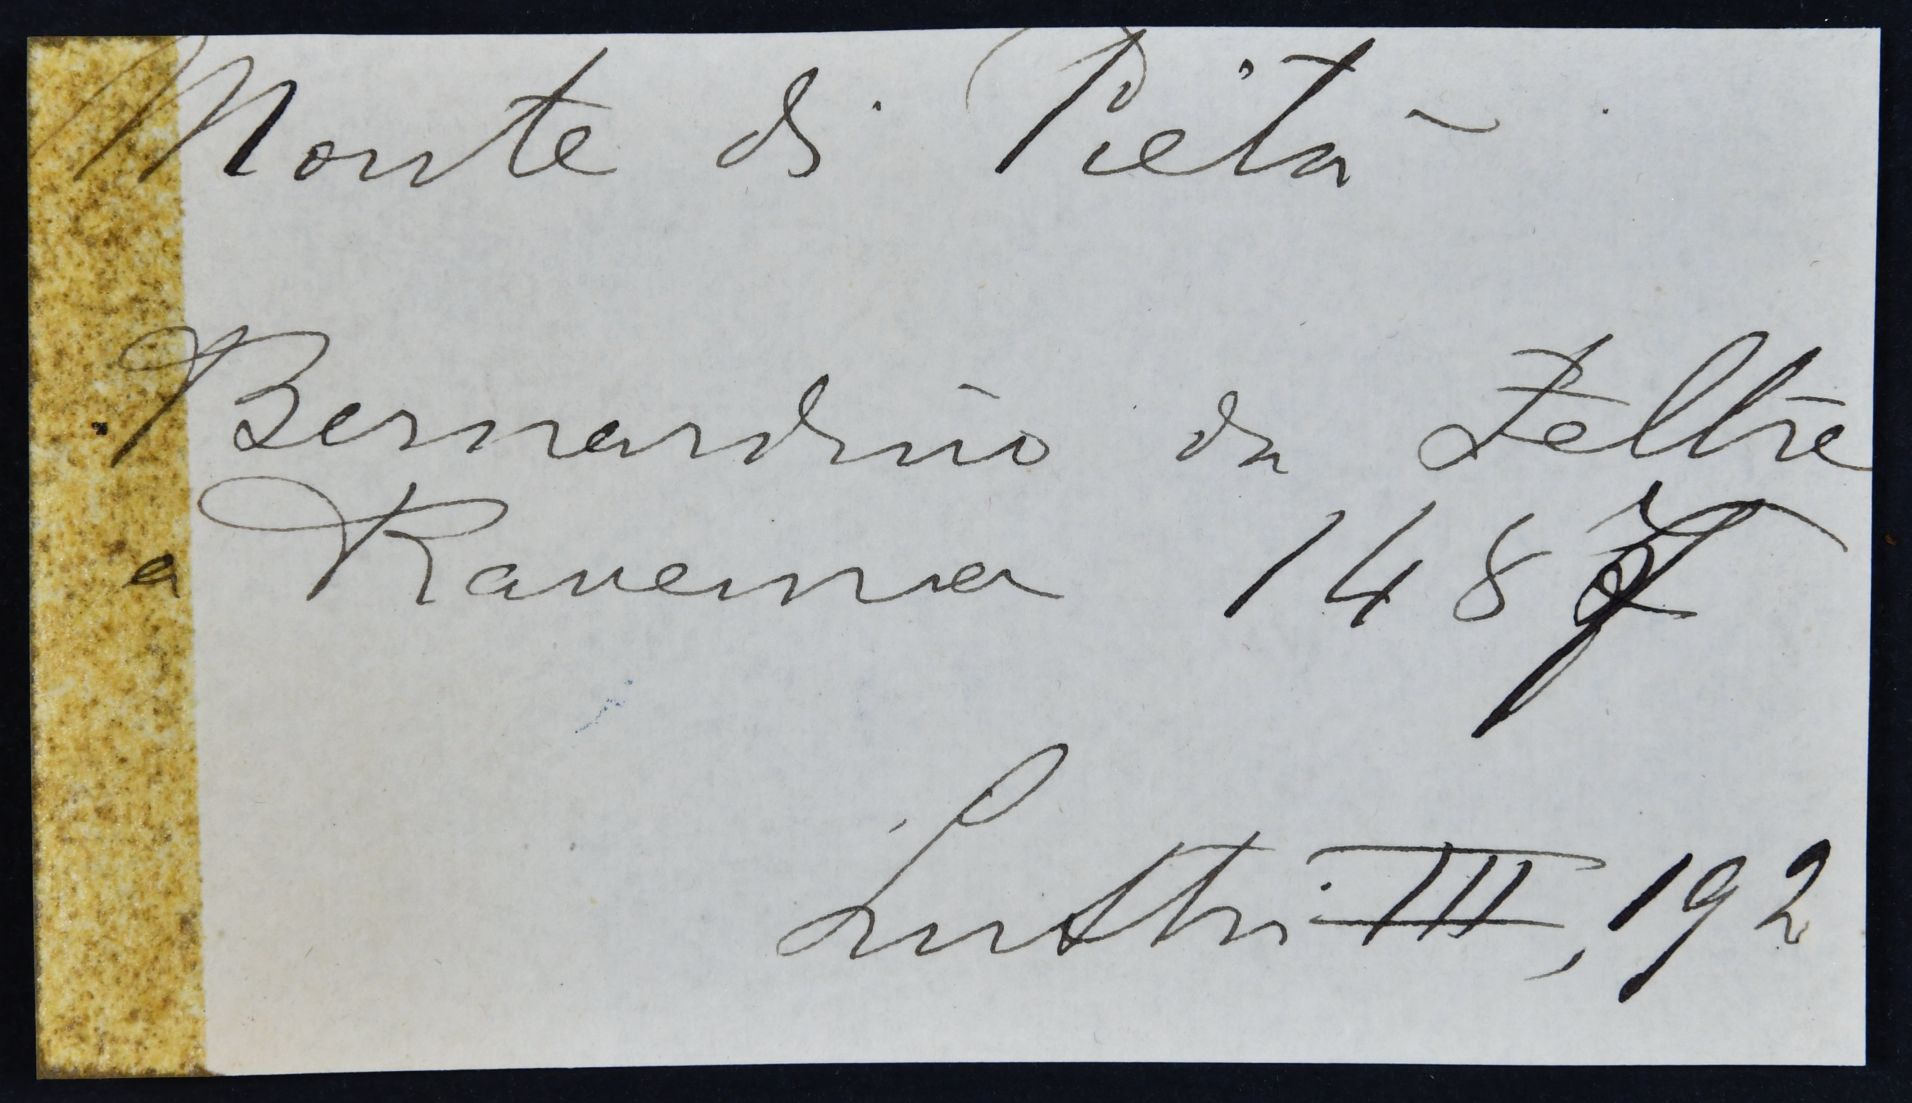 Monte di Pietà
Bernardino da Feltre
a Ravenna 1487
Lustri III, 192